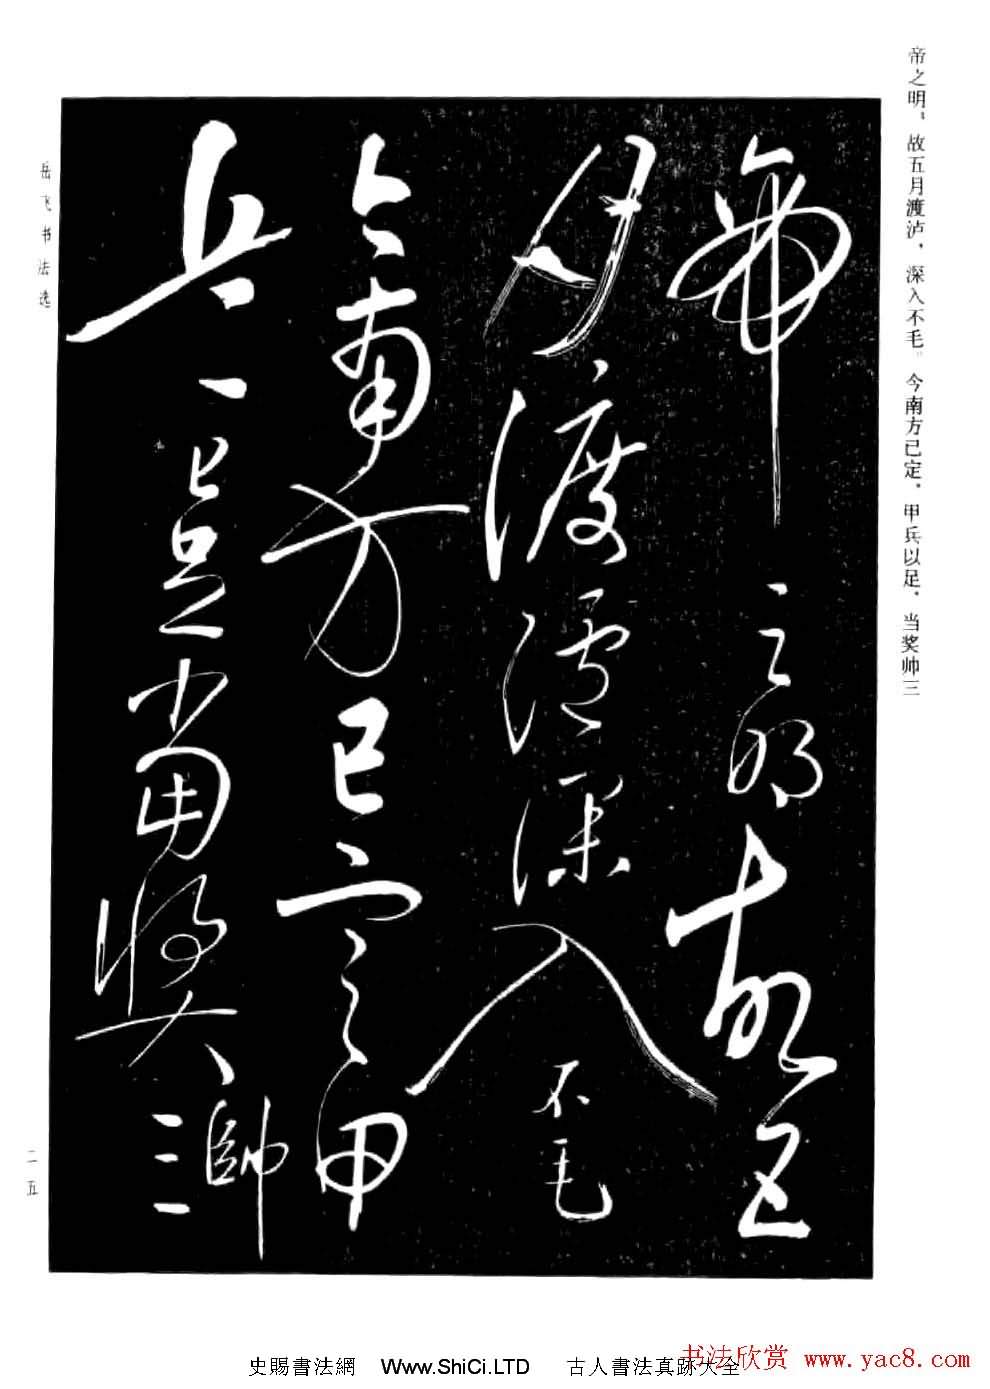 帝之明，故五月渡泸，深入不毛。今南方已定，甲兵以足，当奖帅三
帝之明故五
月渡瀘深入不毛
今南方已定甲
兵以足當獎帥三
岳飞书法选
二五
史賜書法網 Www.ShiCi.LTD 古人書法真跡大全
书法欣赏 www.yac8.com